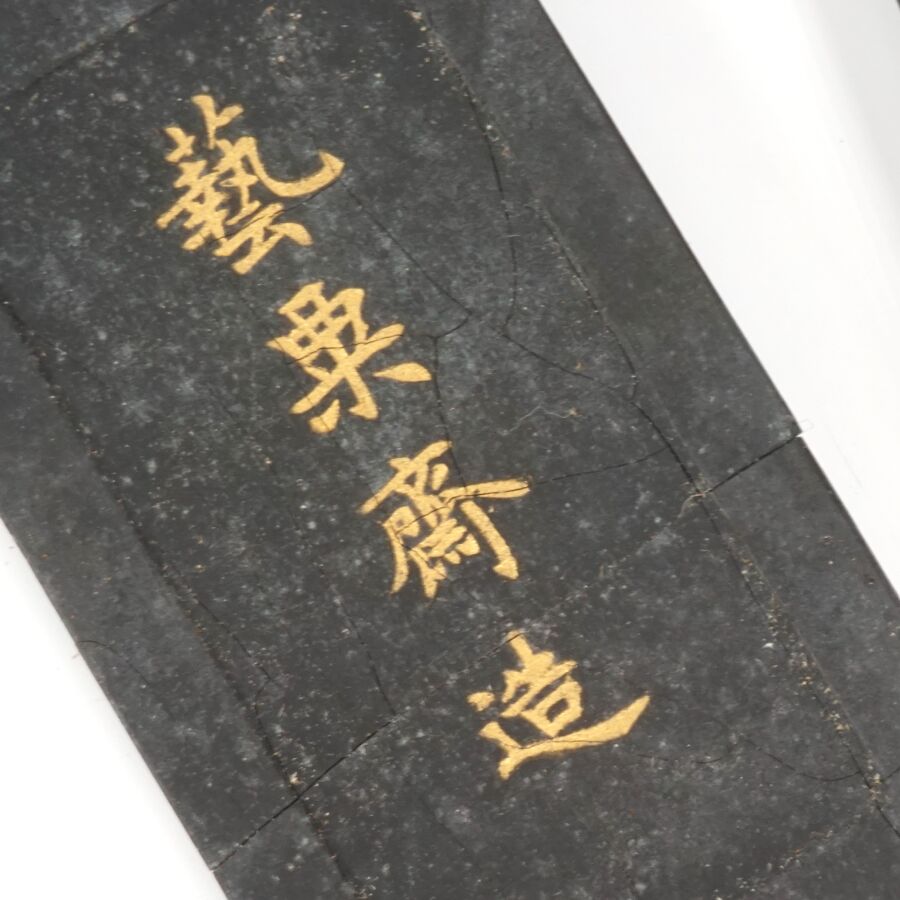 藝粟齋造